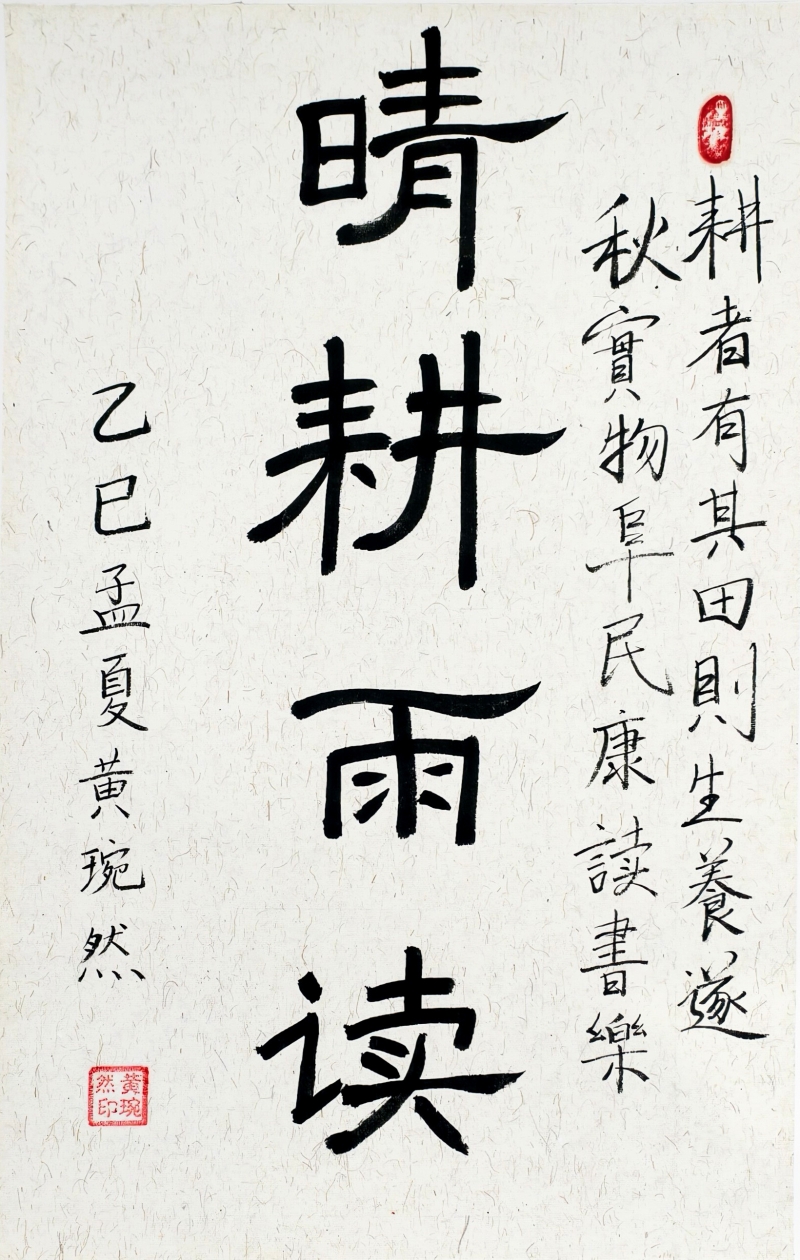 耕者有其田則生養遂
秋實物阜民康読書樂
晴耕雨读
乙巳孟夏黄琬然
黃琬然印